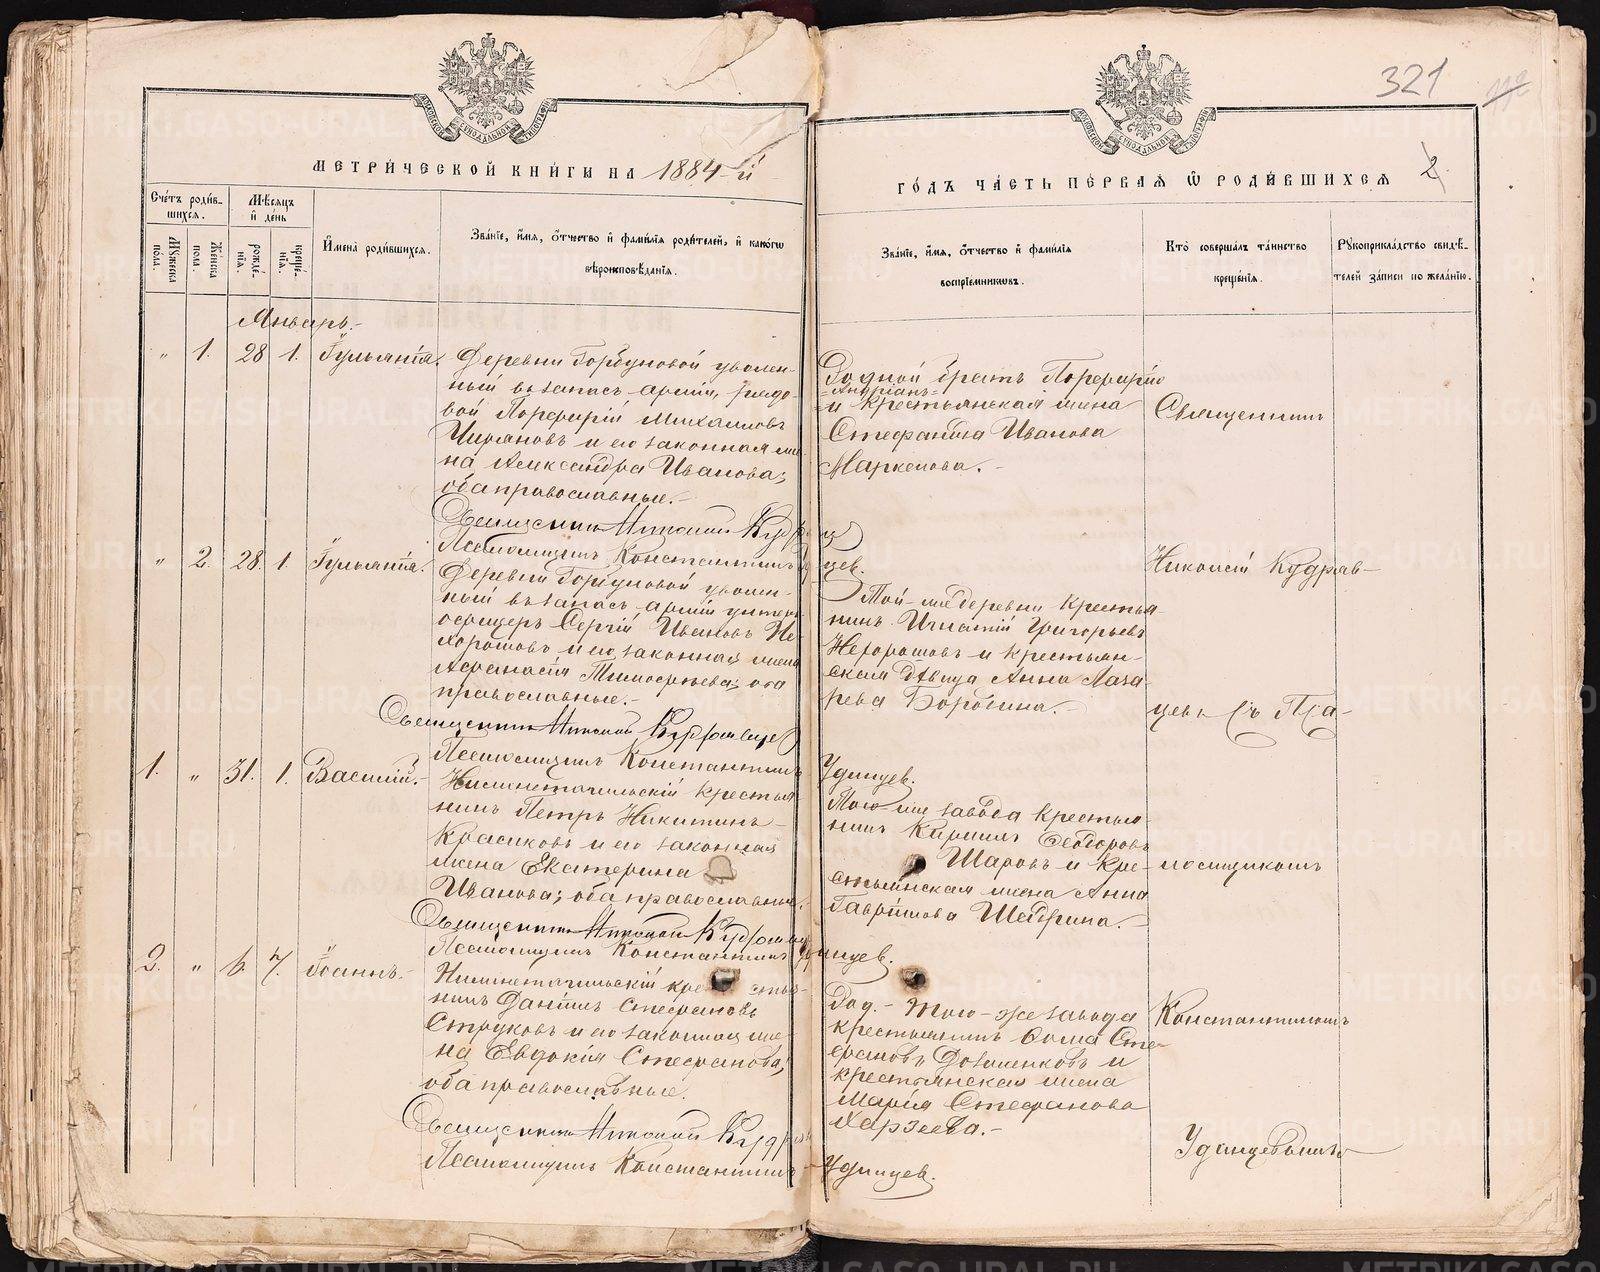 321
МЕТРИ́ЧЕСКОЙ КНИ́ГИ НА 1884-й
ГО́ДЪ ЧА́СТЬ ПЕ́РВАЯ Ѿ РОДИ́ВШИХСЯ 2.
Сче́тъ роди́в-
шихся.
Мѣ́сяцъ
и де́нь
Му́жеска пола.
Же́нска пола.
рожде́-
нїя.
креще́-
нїя.
Имена̀ роди́вшихся.
Зва́нїе, и́мя, ѻ́тчество и фами́лїя роди́телей, и како́гѡ
вѣроисповѣ́данїя.
Зва́нїе, и́мя, ѻ́тчество и фами́лїя
воспрїе́мникѡвъ.
Кто̀ соверша́лъ та́инство
креще́нїя.
Рꙋкоприкла́дство свидѣ́-
телей за́писи по жела́нїю.
Январь.
" 1. 28 1. Іульянія.
Деревни Горбуновой уволен-
ный въ запасъ арміи, рядо-
вой Порфирій Михаиловъ
и его законная же-
на Александра Иванова;
оба православные.
Родной братъ Порфирію
и крестьянская жена
Стефанида Иванова
Маркелова.
Священникъ
Священникъ Николай Кудрявцевъ
Псаломщикъ Константинъ Удинцев.
" 2. 28. 1. Іульянія.
Деревни Горбуновой уволен-
ный въ запасъ арміи унтеръ
офицеръ Сергій Ивановъ Не-
хорошовъ и его законная жена
Афанасія Тимофѣева; оба
православные.
Той-же деревни крестья-
нинъ Игнатій Григорьевъ
Нехорошовъ и крестьян-
ская дѣвица Анна Лаза-
рева Бородина.
Николай Кудряв-
цевъ съ Пса-
Священникъ Николай Кудрявцев
Псаломщикъ Константинъ Удинцев.
1. " 31. 1. Василій.
Нижнетагильскій крестья-
нинъ Петръ Никитинъ
Красиковъ и его законная
жена Екатерина
Иванова; оба православные.
Того-же завода крестья-
нинъ Кириллъ Ѳеодоровъ
Шаровъ и кре-
стьянская жена Анна
Гаврилова Щедрина.
ломщикомъ
Священникъ Николай Кудрявцев
Псаломщикъ Константинъ Удинцев.
2. " 6. 7. Іоаннъ.
Нижнетагильскій крестья-
нинъ Даніилъ Стефановъ
Струковъ и его законная же-
на Евдокія Стефанова;
оба православные.
Того-же завода
крестьянинъ Ѳома Сте-
фановъ и
крестьянская жена
Марія Стефанова
Константиномъ
Удинцевымъ
Священникъ Николай Кудрявцев
Псаломщикъ Константинъ Удинцев.